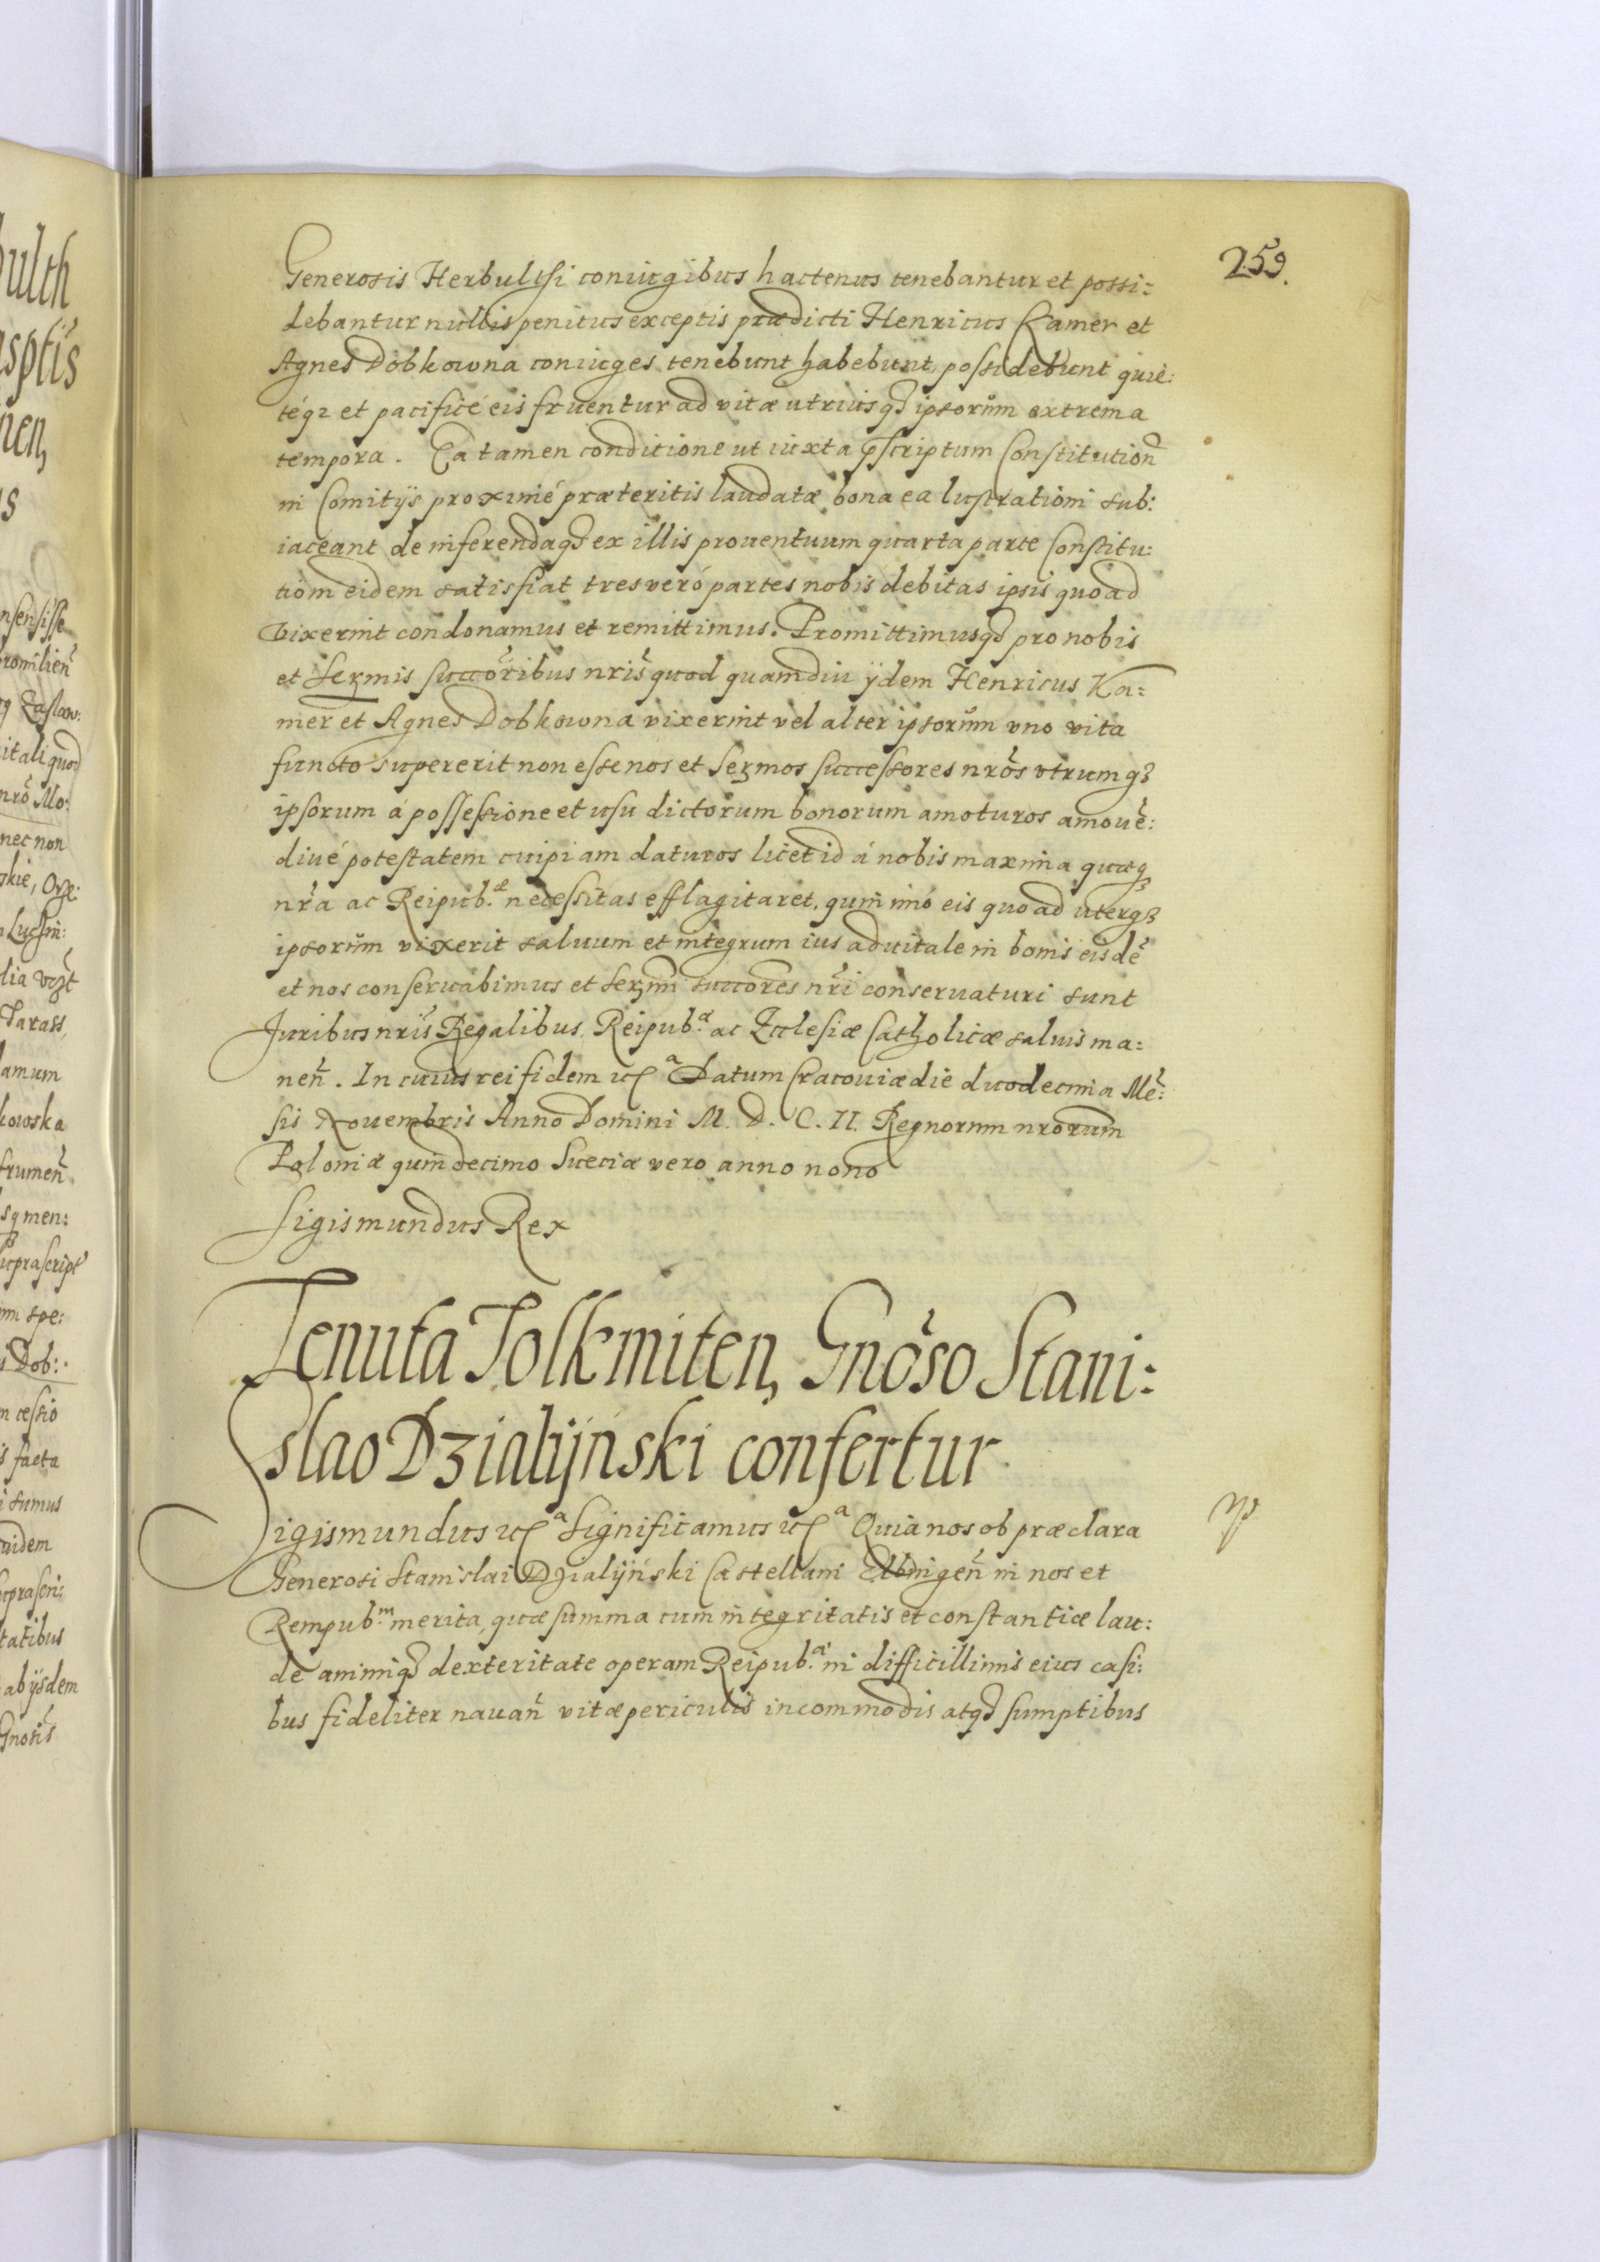 259.
Generosis Herbultsi coniugibus hactenus tenebantur et possi:
debantur nullis penitus exceptis prædicti Henricus Kamer et
Agnes Dobkowna coniuges tenebunt habebunt possidebunt quié:
téqz et pacificé eis fruentur ad vitæ utriusq3 ipsorum extrema
tempora. Ea tamen conditione ut iuxta pscriptum Constitution
in Comitÿs proximé præteritis laudatæ bona ea lustrationi sub:
iaceant de inferendaq3 ex illis prouentuum quarta parte Constitu:
tiom eidem satisfiat tres veró partes nobis debitas ipsis quoad
vixerint condonamus et remittimus. Promittimusq3 pro nobis
et Sermis succoribus nris quod quamdiu ÿdem Henricus Ka:
mer et Agnes Dobkowna vixerint vel alter ipsorum vno vita
functo supererit non esse nos et Sermos successores nros vtrumq3
ipsorum á possessione et usu dictorum bonorum amoturos amoué:
diué potestatem cuipiam daturos licet id á nobis maxima quæq3
nra ac Reipub.æ necessitas efflagitaret, quin imó eis quoad uterq3
ipsorum vixerit saluum et integrum ius aduitale in bonis eisdé
et nos conseruabimus et Sermi succores nri conseruaturi sunt
Juribus nris Regalibus, Reipub.æ ac Ecclesiæ Catholicæ saluis ma:
nen. In cuius rei fidem etc.a Datum Cracouiæ die duodecima Mé:
sis Nouembris Anno Domini M. D. C. II. Regnorum nrorum
Poloniæ quindecimo Sueciæ vero anno nono
Sigismundus Rex
Tenuta Tolkmiten, Gnoso Stani:
slao Dzialÿński confertur
Sigismundus etc.a Significamus etc.a Quia nos ob præclara
Generosi Stanislai Dzialÿński Castellani Elbingen in nos et
Rempub.m merita, quæ summa cum integritatis et constantiæ lau:
de animiq3 dexteritate operam Reipub.æ in difficillimis eius casi:
bus fideliter nauan vitæ periculis incommodis atq3 sumptibus